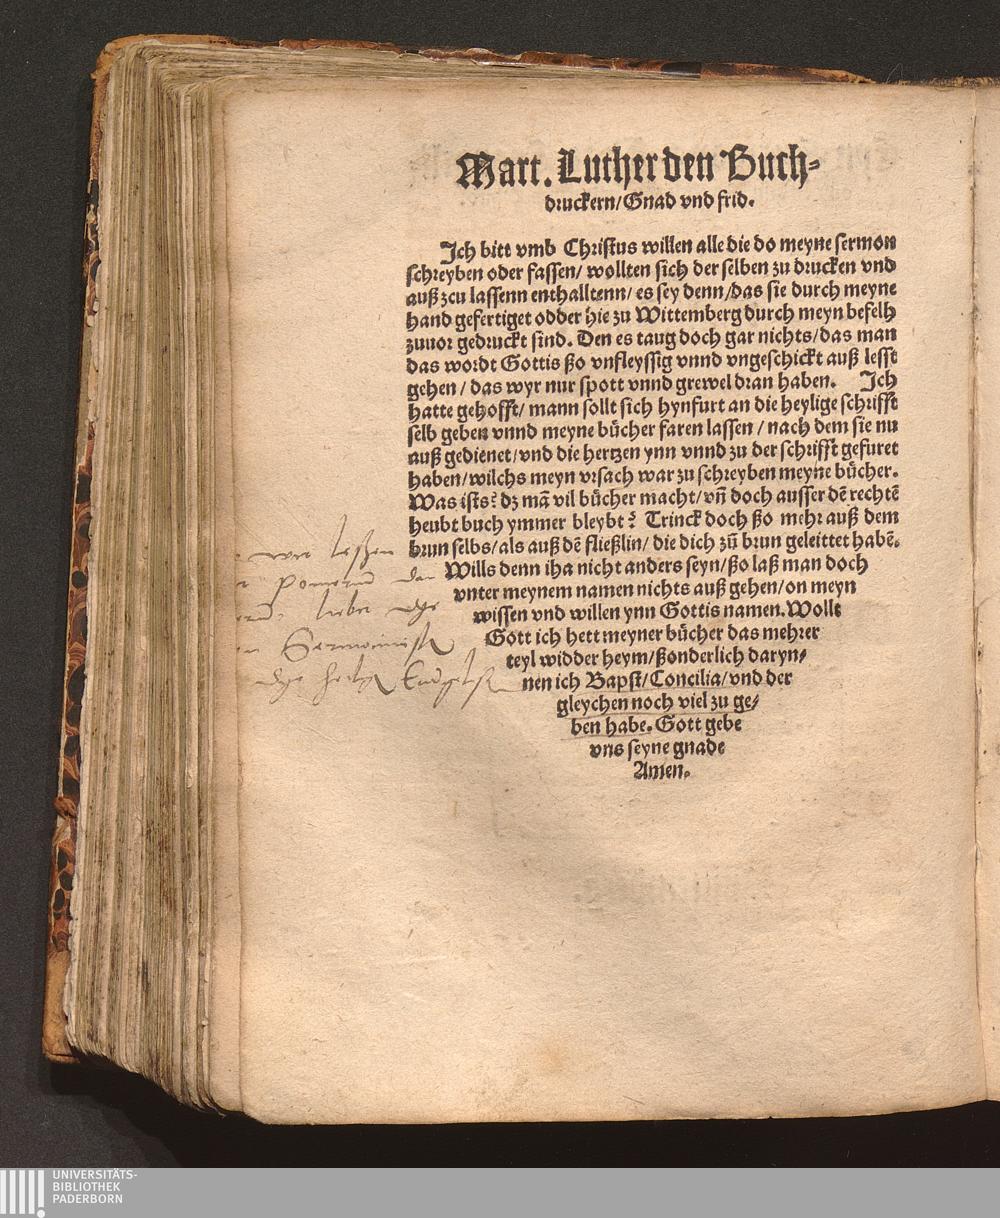 Mart. Luther den Buch-
druckern/Gnad vnd frid.
Ich bitt vmb Christus willen alle die do meyne sermon
schreyben oder fassen/ wollten sich der selben zu drucken vnd
auß zcu lassenn enthalltenn/ es sey denn/das sie durch meyne
hand gefertiget odder hie zu Wittemberg durch meyn befelh
zuuor gedruckt sind. Den es taug doch gar nichts/das man
das wordt Gottis ßo vnfleyssig vnnd vngeschickt auß lesst
gehen/ das wyr nur spott vnnd grewel dran haben. Ich
hatte gehofft/ mann sollt sich hynfurt an die heylige schrifft
selb geben vnnd meyne bücher faren lassen/ nach dem sie nu
auß gedienet/vnd die hertzen ynn vnnd zu der schrifft gefuret
haben/wilchs meyn vrsach war zu schreyben meyne bücher.
Was ists? dz mā vil bücher macht/ vn̄ doch ausser dē rechtē
heubt buch ymmer bleybt? Trinck doch ßo mehr auß dem
brun selbs/als auß dē fließlin/ die dich zū brun geleittet habē.
Wills denn iha nicht anders seyn/ßo laß man doch
vnter meynem namen nichts auß gehen/on meyn
wissen vnd willen ynn Gottis namen. Wollt
Gott ich hett meyner bücher das mehrer
teyl widder heym/ßonderlich daryn-
nen ich Bapst/Concilia/vnd der
gleychen noch viel zu ge-
ben habe. Gott gebe
vns seyne gnade
Amen.
UNIVERSITÄTS-
BIBLIOTHEK
PADERBORN